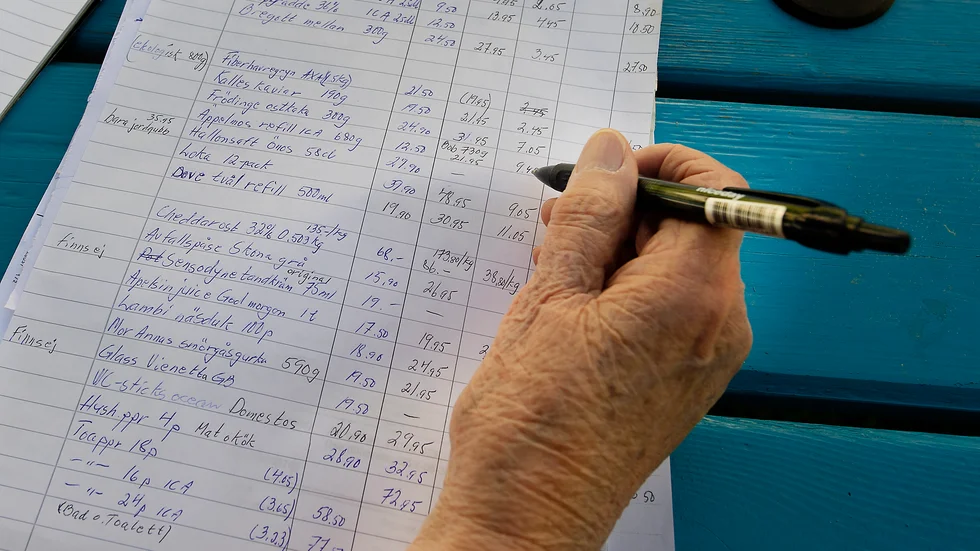 ICA 9.50 8.90
Bregott mellan 300g 12.50 13.95 4.45 10.50
24.50 27.95 3.45 27.50
(ekologisk 800g)
Fiberhavregryn
Kalles kaviar 190g 21.50 (19.95) 2.45
Frödinge ostkaka 300g 19.50 21.45 2.45
35.95 Äppelmos refill ICA 680g 24.90 31.95 7.05
Bara jordgubb Hallonsaft Önos 58cl 12.50 Bob 730g 21.95 9.4
Loka 12 pack 27.90 —
Dove tvål refill 500ml 39.90 48.95 9.05
19.90 30.95 11.05
Cheddarost 32% 0.503kg 135-/kg 173.80/kg 38.80/kg
Finns ej Avfallspåse Skona grå 68.- 86.-
Sensodyne tandkräm original 75ml 15.90 26.95
Apelsinjuice God morgon 1l 19.- —
Lambi näsduk 100p 17.50 19.95
Finns ej Mor Annas smörgåsgurka 590g 18.90 24.95
Glass Vienetta GB 19.50 21.95
WC-sticks ocean Domestos 19.50 —
Hush.ppr 4p Mat o kök 20.90 29.95
Toappr 18p 28.90 32.95
—"— 16p ICA (4.05) 72.95
—"— 24p ICA (3.65) 58.50
(Bad o. Toalett) (3.23) 77